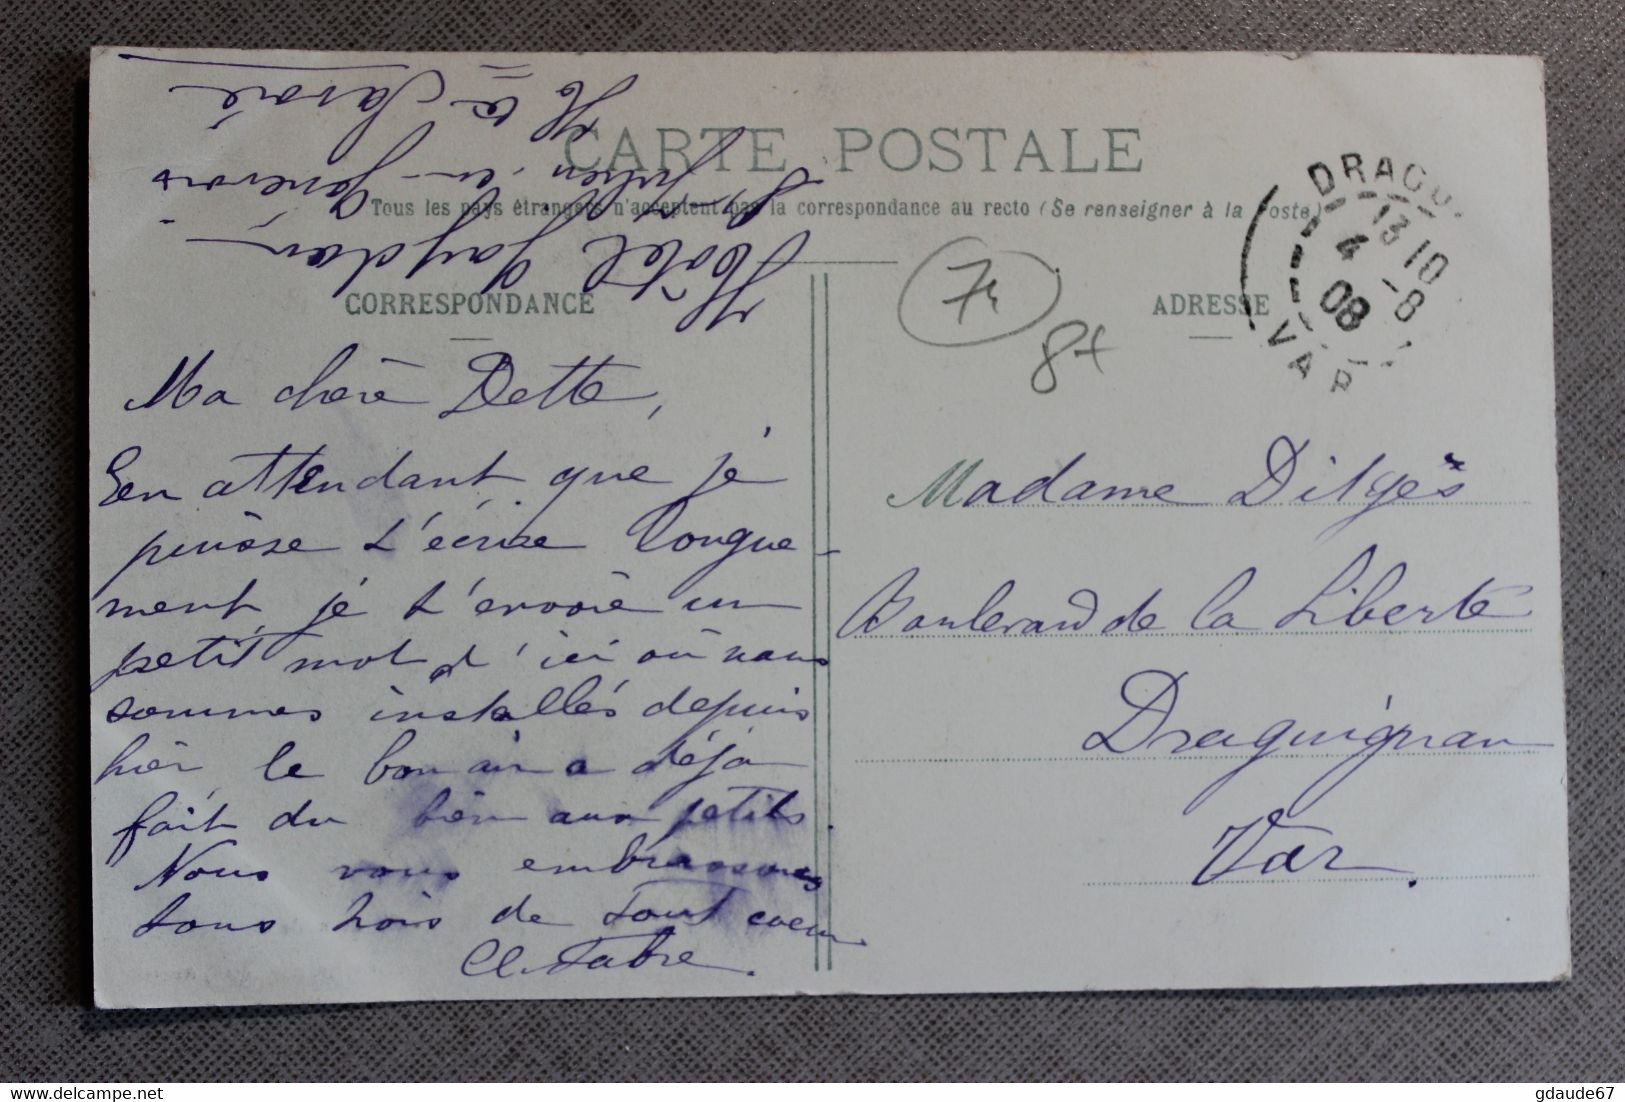 Hôtel
St Julien-en-Genevois
Hte Savoie
CARTE POSTALE
Tous les pays étrangers n'acceptent pas la correspondance au recto (Se renseigner à la Poste)
CORRESPONDANCE
ADRESSE
DRAGU
13 10
4 -8
08
VAR
Ma chère Dette,
En attendant que je
puisse t'écrire longue-
ment, je t'envoie un
petit mot d'ici où nous
sommes installés depuis
hier, le bon air a déjà
fait du bien aux petits.
Nous vous embrassons
tous trois de tout coeur
Cl. Fabre.
Madame Dilgès
Boulevard de la Liberté
Draguignan
Var.
delcampe.net
gdaude67